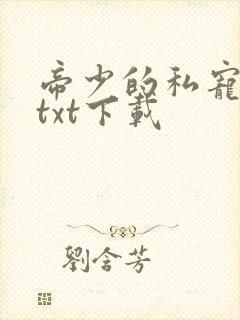 帝少的私寵
txt下載
劉含芳